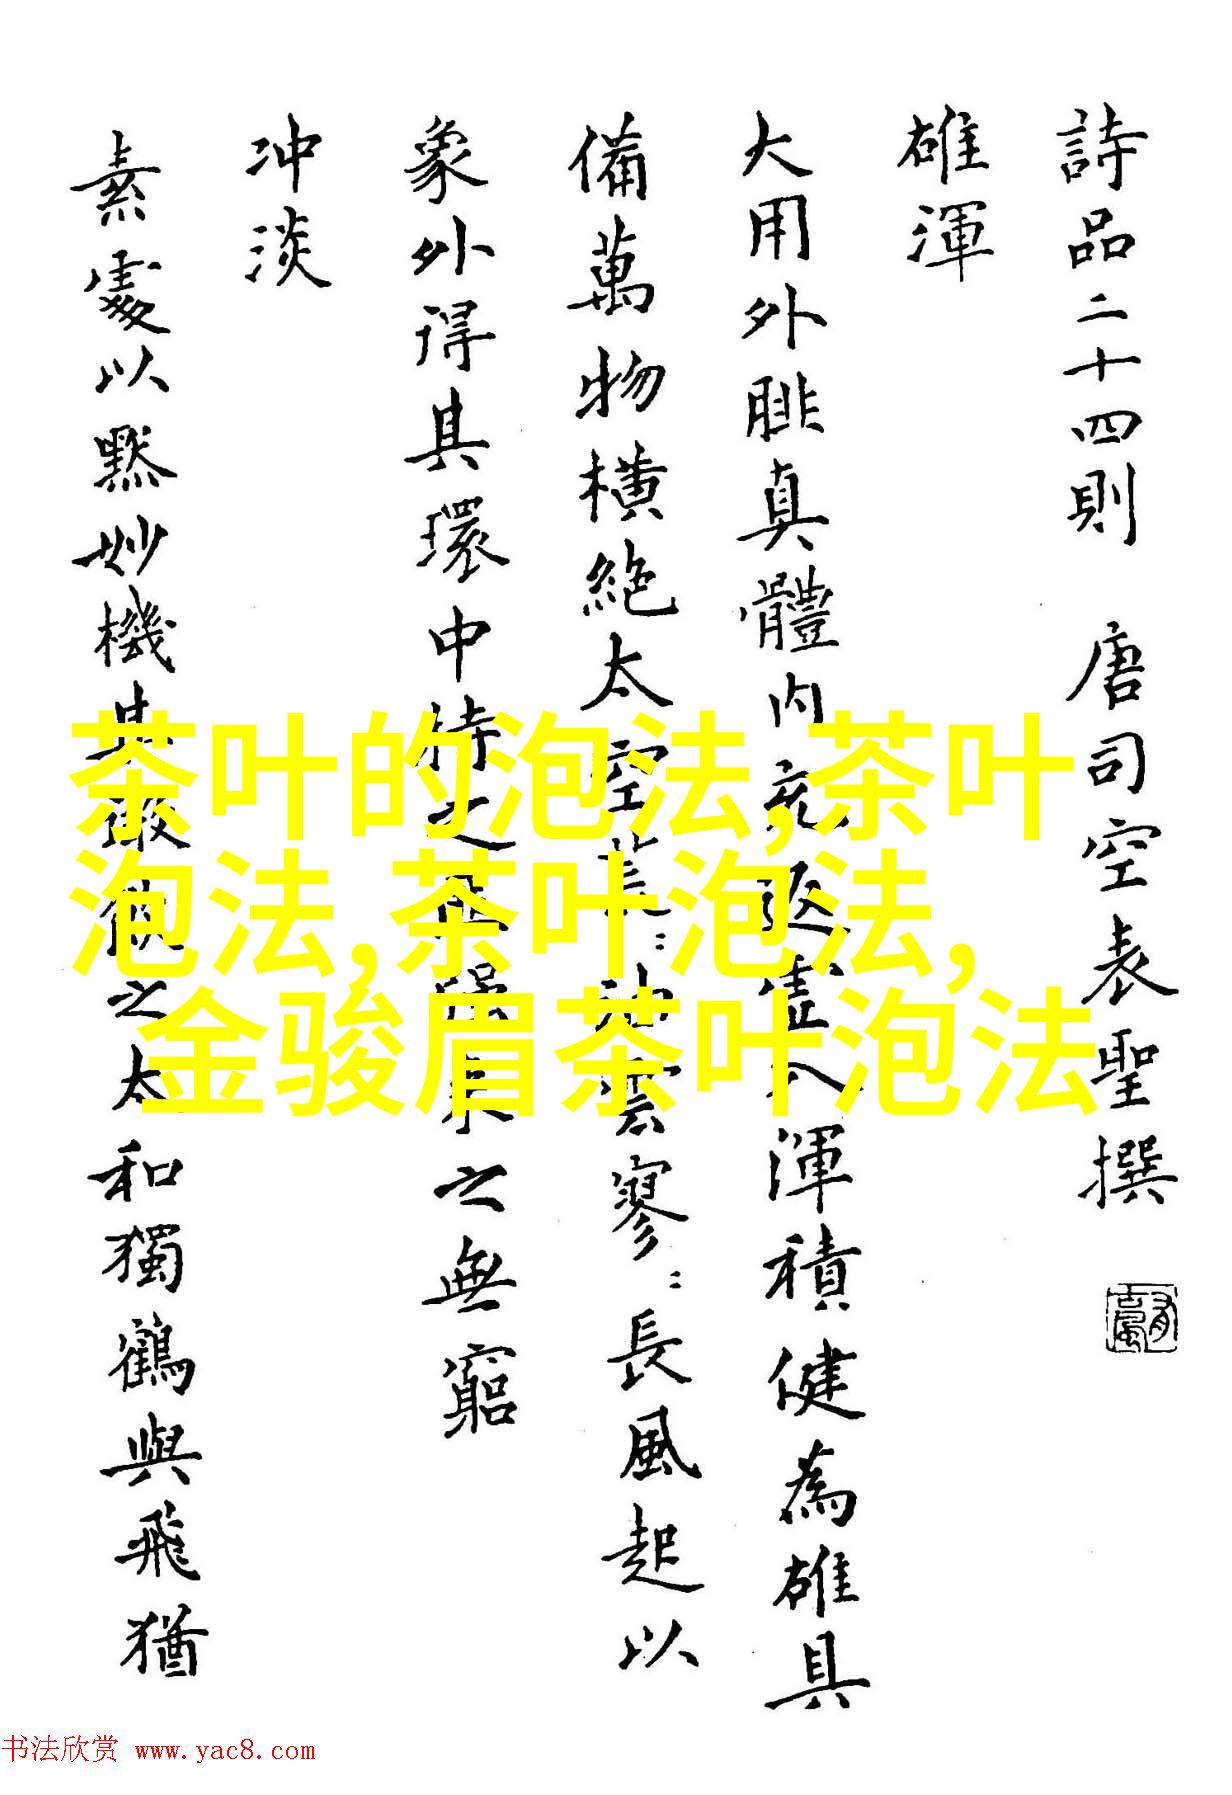 詩品二十四則 唐司空表聖撰
雄渾
大用外腓真體內充返虛入渾積健為雄具
備萬物橫絕太空荒〻油雲寥〻長風起以
象外得其環中持之匪强來之無窮
冲淡
素處以默妙機其微飲之太和獨鶴與飛猶
茶叶的泡法,茶叶
泡法,茶叶泡法,
金骏眉茶叶泡法
书法欣赏 www.yac8.com